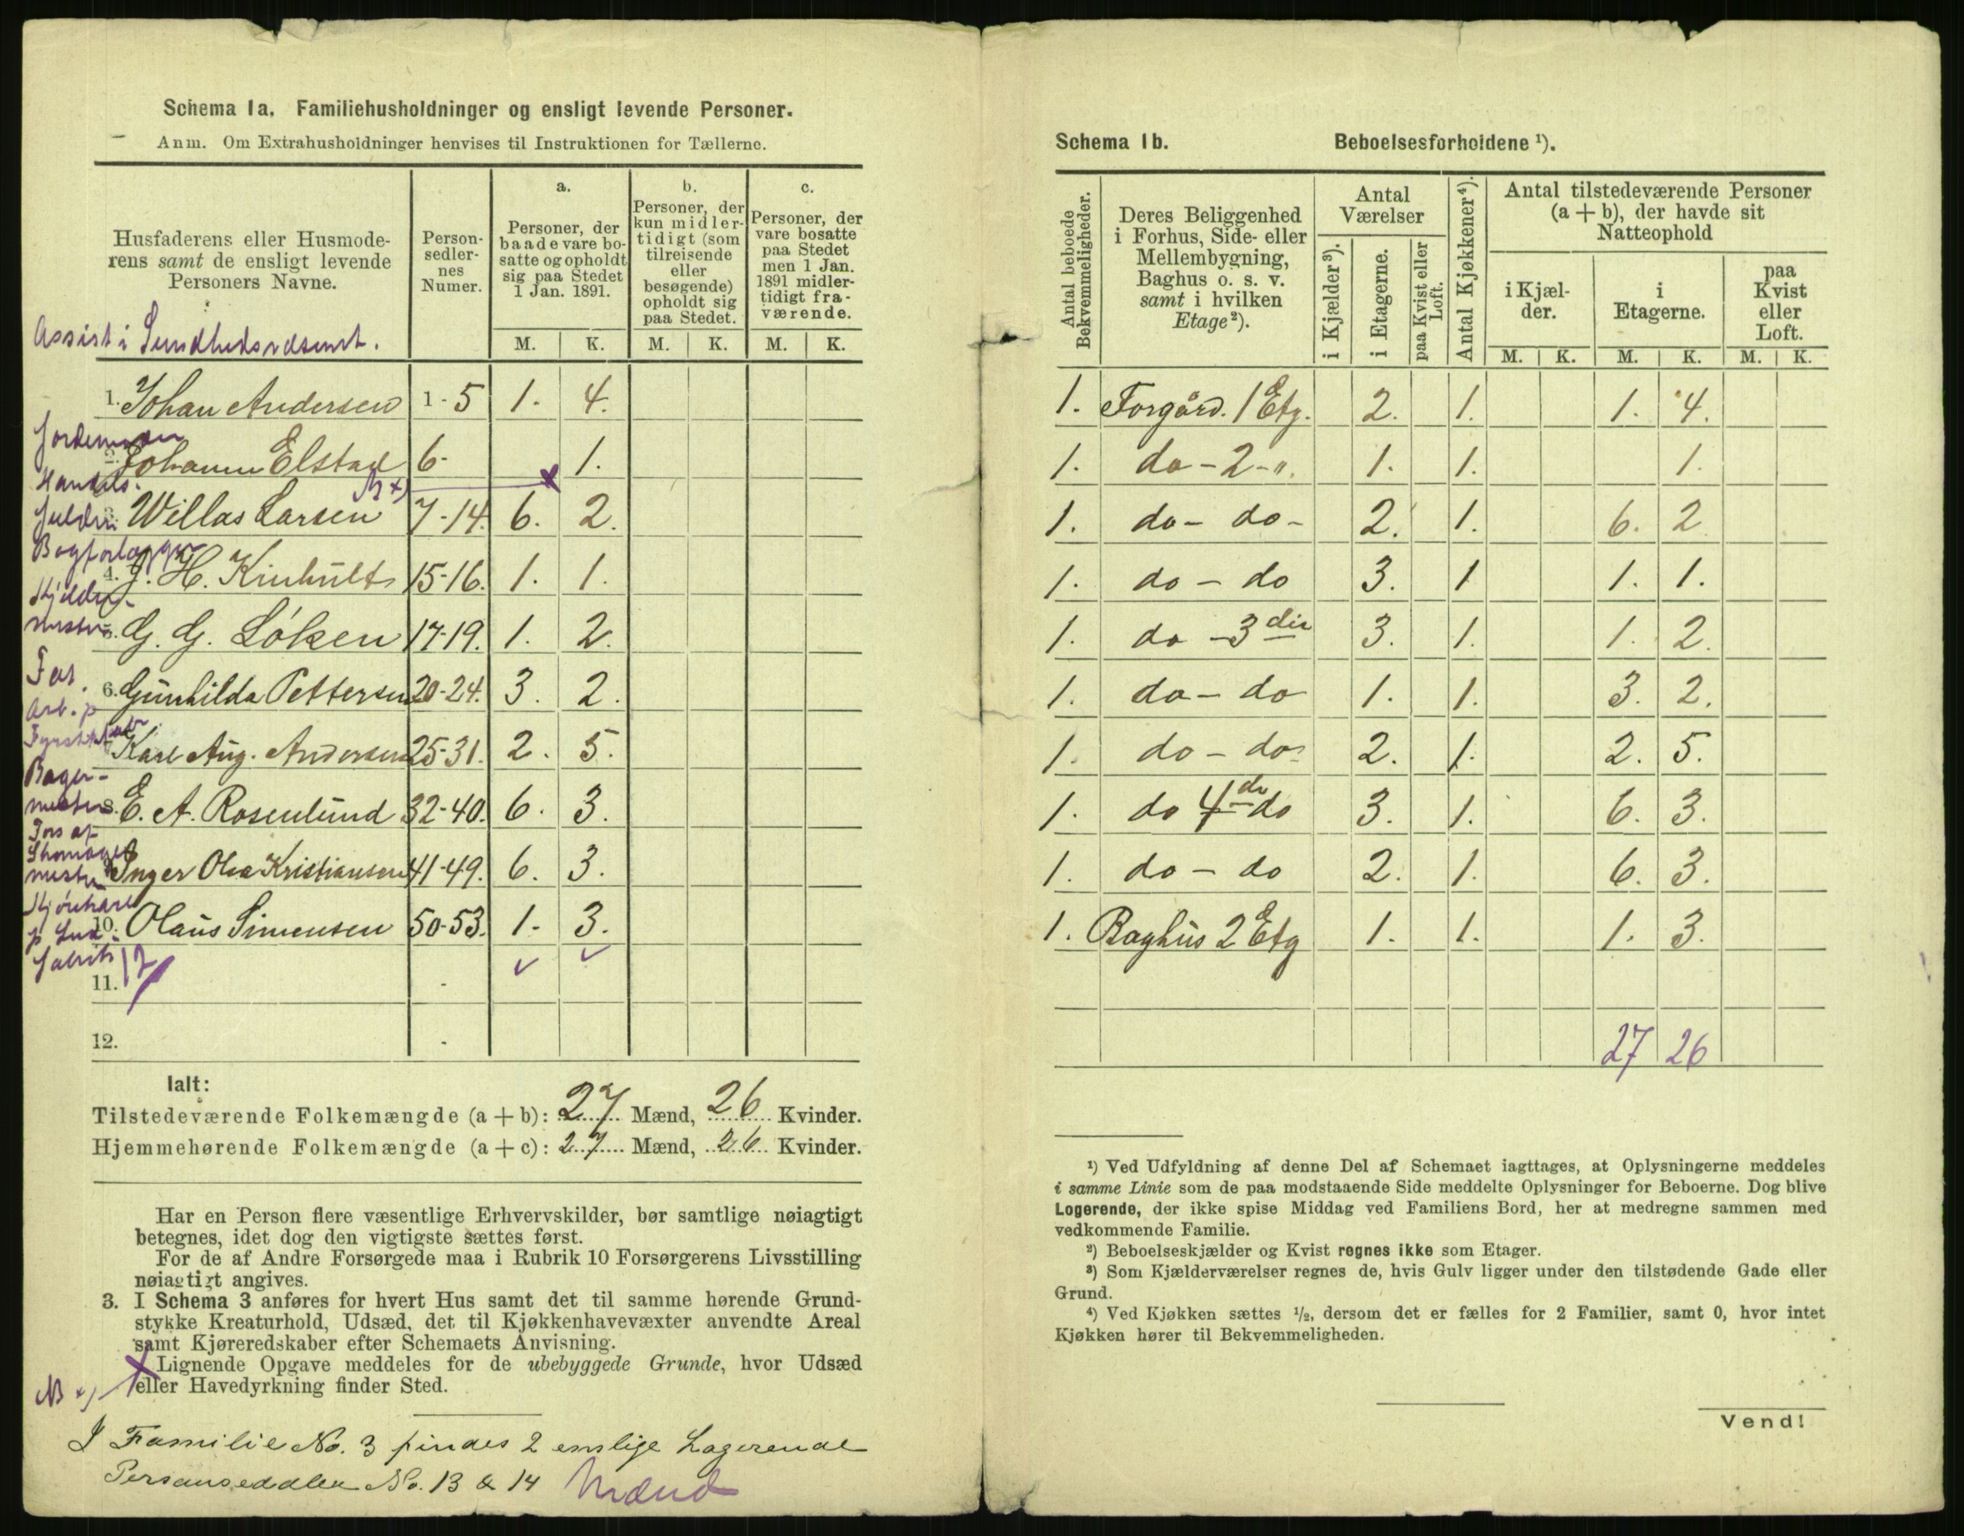 Schema 1a. Familiehusholdninger og ensligt levende Personer.
Anm. Om Extrahusholdninger henvises til Instruktionen for Tællerne.
Husfaderens eller Husmoderens samt de ensligt levende Personers Navne.
Person-sedler-nes Numer.
a. Personer, der baade vare bosatte og opholdt sig paa Stedet 1 Jan. 1891.
b. Personer, der kun midlertidigt (som tilreisende eller besøgende) opholdt sig paa Stedet.
c. Personer, der vare bosatte paa Stedet men 1 Jan. 1891 midlertidigt fraværende.
M. K. M. K. M. K.
Assist i
1. Johan Andersen 1-5 1. 4.
2. Elstad 6- 1.
Handels.
3. Willas Larsen NB x) 7-14. 6. 2.
Bogforlægger
4. J. H. Kinhult 15-16. 1. 1.
5. G. G. Løken 17-19. 1. 2.
6. Gunhilda Pettersen 20-24. 3. 2.
Arb. p
7. Karl Aug. Andersen 25-31. 2. 5.
Bager-
mester
8. E. A. Rosenlund 32-40. 6. 3.
Fors af
9. Inger Olea Kristiansen 41-49. 6. 3.
10. Olaus Simensen 50-53. 1. 3.
11.
12.
Ialt:
Tilstedeværende Folkemængde (a + b): 27 Mænd, 26 Kvinder.
Hjemmehørende Folkemængde (a + c): 27 Mænd, 26 Kvinder.
Har en Person flere væsentlige Erhvervskilder, bør samtlige nøiagtigt
betegnes, idet dog den vigtigste sættes først.
For de af Andre Forsørgede maa i Rubrik 10 Forsørgerens Livsstilling
nøiagtigt angives.
3. I Schema 3 anføres for hvert Hus samt det til samme hørende Grund-
stykke Kreaturhold, Udsæd, det til Kjøkkenhavevæxter anvendte Areal
samt Kjøreredskaber efter Schemaets Anvisning.
Lignende Opgave meddeles for de ubebyggede Grunde, hvor Udsæd
eller Havedyrkning finder Sted.
NB x)
I Familie No. 3 findes 2 enslige Logerende
Personsedler No. 13 & 14 Mænd
Schema 1b. Beboelsesforholdene ¹).
Antal beboede Bekvemmeligheder.
Deres Beliggenhed i Forhus, Side- eller Mellembygning, Baghus o. s. v. samt i hvilken Etage²).
Antal Værelser
i Kjælder³).
i Etagerne.
paa Kvist eller Loft.
Antal Kjøkkener⁴).
Antal tilstedeværende Personer (a + b), der havde sit Natteophold
i Kjælder.
i Etagerne.
paa Kvist eller Loft.
M. K. M. K. M. K.
1. Forgård. 1 Etg. 2. 1. 1. 4.
1. do - 2 - ". 1. 1. 1.
1. do - do - 2. 1. 6. 2
1. do - do 3. 1 1. 1.
1. do - 3 die 3. 1. 1. 2.
1. do - do 1. 1. 3. 2.
1. do - do 2. 1. 2. 5.
1. do 4 de do 3. 1. 6. 3.
1. do - do 2. 1. 6. 3.
1. Baghus 2 Etg 1. 1. 1. 3.
27 26
¹) Ved Udfyldning af denne Del af Schemaet iagttages, at Oplysningerne meddeles
i samme Linie som de paa modstaaende Side meddelte Oplysninger for Beboerne. Dog blive
Logerende, der ikke spise Middag ved Familiens Bord, her at medregne sammen med
vedkommende Familie.
²) Beboelseskjælder og Kvist regnes ikke som Etager.
³) Som Kjælderværelser regnes de, hvis Gulv ligger under den tilstødende Gade eller
Grund.
⁴) Ved Kjøkken sættes ½, dersom det er fælles for 2 Familier, samt 0, hvor intet
Kjøkken hører til Bekvemmeligheden.
Vend!